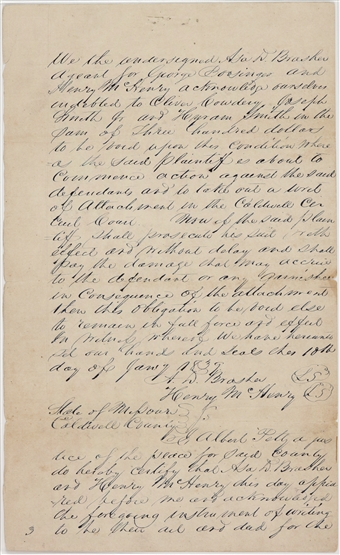 We the undersigned Asa D Brasher
Agent for George Poesinger and
Henry McHenry acknowledge ourselves
indebted to Oliver Cowdery Joseph
Smith Jr and Hyrum Smith in the
Sum of Three hundred dollars
to be void upon this condition where
as the said Plaintif is about to
Commence action against the said
defendants and to take out a
of Attachment in the Caldwell Cir
cuit Court Now if the said Plain
tif shall prosecute his suit with
effect and without delay and shall
pay the damage that may accrue
to the defendant or any
in Consequence of the attachment
then this obligation to be void else
to remain in full force and effect
In witness whereof We have hereunto
Set our hands and Seals this 10th
day of Jany
A D Brasher LS
Henry McHenry LS
State of Missouri
Caldwell County
I Albert Petty a jus
tice of the peace for said County
do hereby certify that Asa D Brasher
and Henry McHenry this day appea
red before me and acknowledged
the foregoing instrument of writing
to be their act and deed for the
3